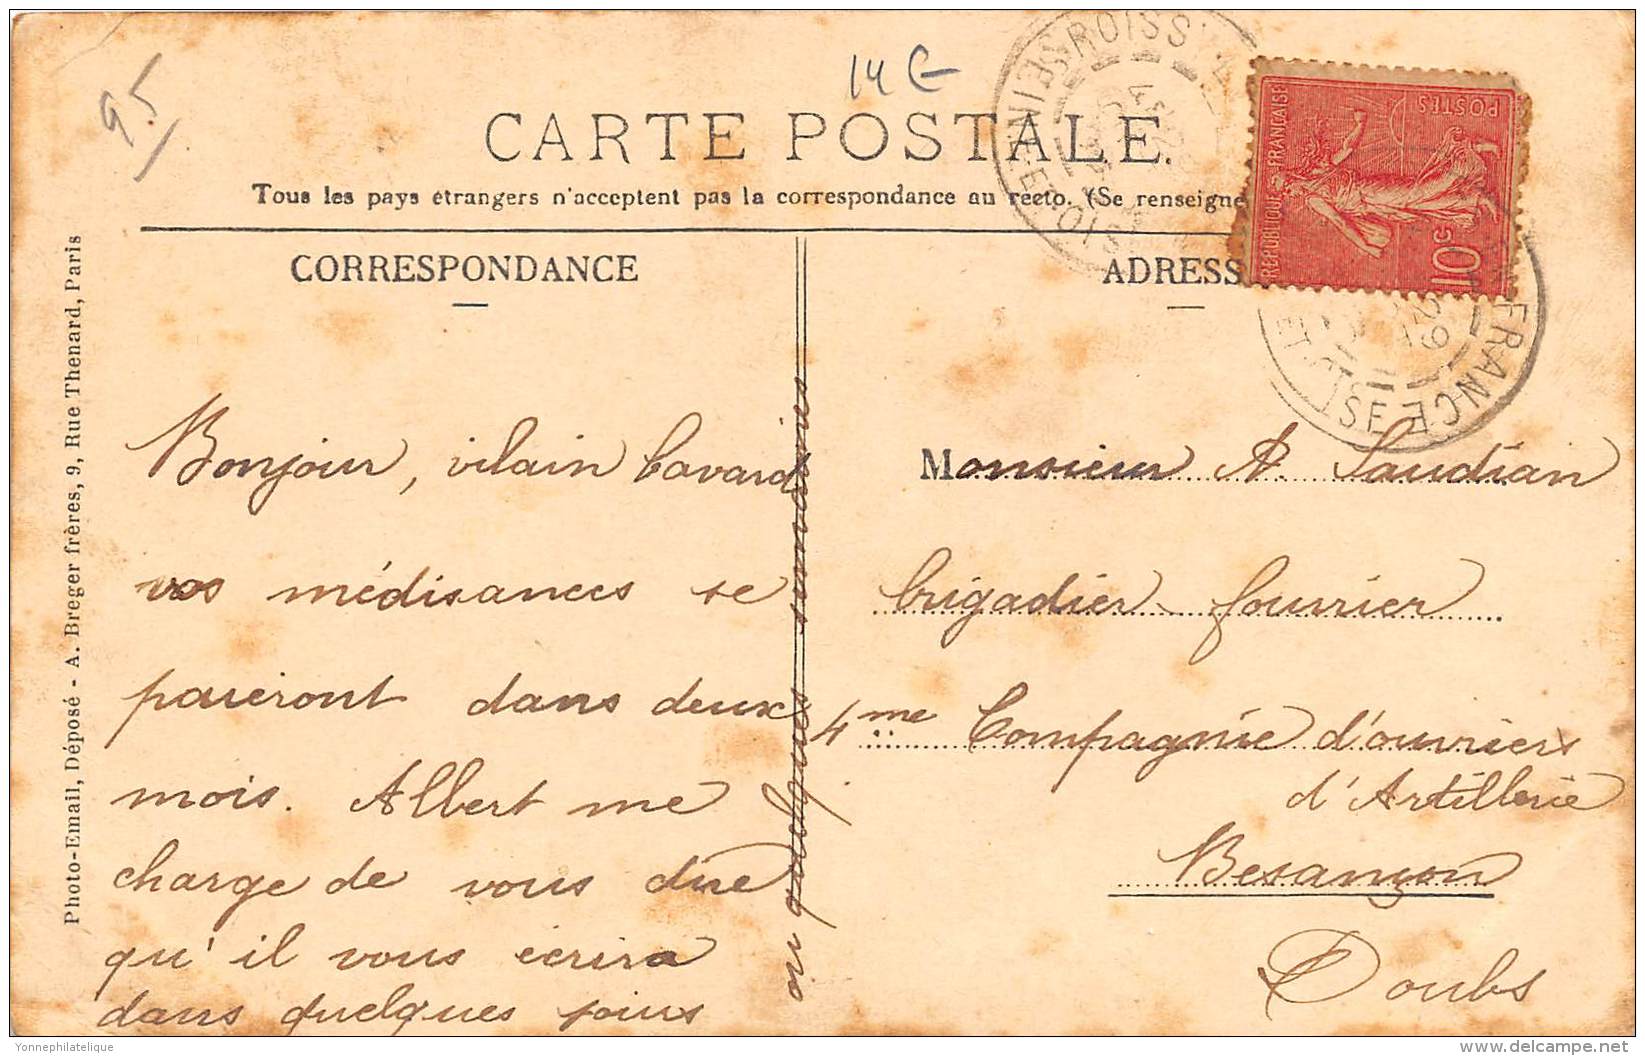 95
14 E
CARTE POSTALE.
Tous les pays étrangers n'acceptent pas la correspondance au recto. (Se renseigne
CORRESPONDANCE
ADRESS
ROISSY
SEINE-ET-OISE
REPUBLIQUE FRANÇAISE
POSTES
10c
FRANCE
ET-OISE
Photo-Email, Déposé - A. Breger frères, 9, Rue Thenard, Paris
Bonjour, vilain bavard
vos médisances se
paieront dans deux
mois. Albert me
charge de vous dire
qu'il vous écrira
dans quelques jours
ou quelques semaines
Monsieur A. Saudian
brigadier-fourrier
4me Compagnie d'ouvriers
d'Artillerie
Besançon
Doubs
Yonnephilatelique
delcampe.net